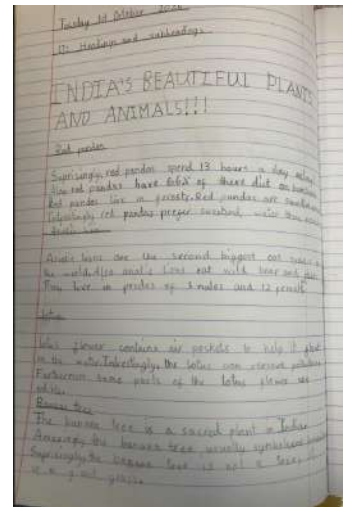 Tuesday 1st October
LO: Headings and subheadings
INDIA'S BEAUTIFUL PLANTS
AND ANIMALS!!!
Red pandas
Suprisingly, red pandas spend 13 hours a day eating
Also red pandas have 66% of there diet on bamboo
Red pandas live in forests. Red pandas are
Intrestingly red pandas prefer
Asiatic lion
Asiatic lions are the second biggest cat species in
the world. Also asiatic lions eat wild boar and
They live in prides of 3 males and 12 females
Lotus
Lotus flower contains air pockets to help it float
in the water. Intrestingly, the lotus can
Furthermore some parts of the lotus flower are
edible
Banana tree
The banana tree is a sacred plant in Indian
Amazingly the banana tree usually symbolises
Suprisingly, the banana tree is not a tree, it
is a giant grass.